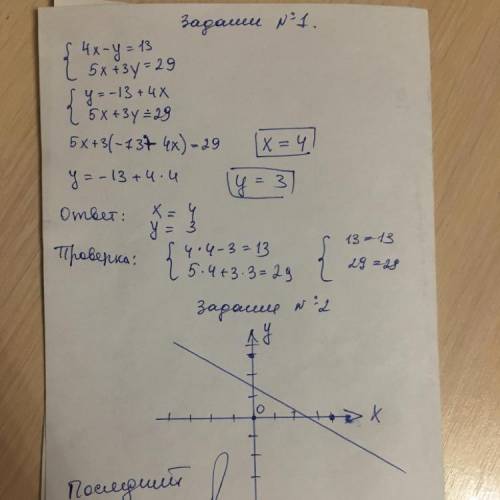 Задание №1.
{ 4x-y=13
5x+3y=29
{ y=-13+4x
5x+3y=29
5x+3(-13+4x)=29 x=4
y=-13+4·4 y=3
Ответ: x=4
y=3
Проверка: { 4·4-3=13 { 13=13
5·4+3·3=29 29=29
Задание №2
y
0
x
Последний